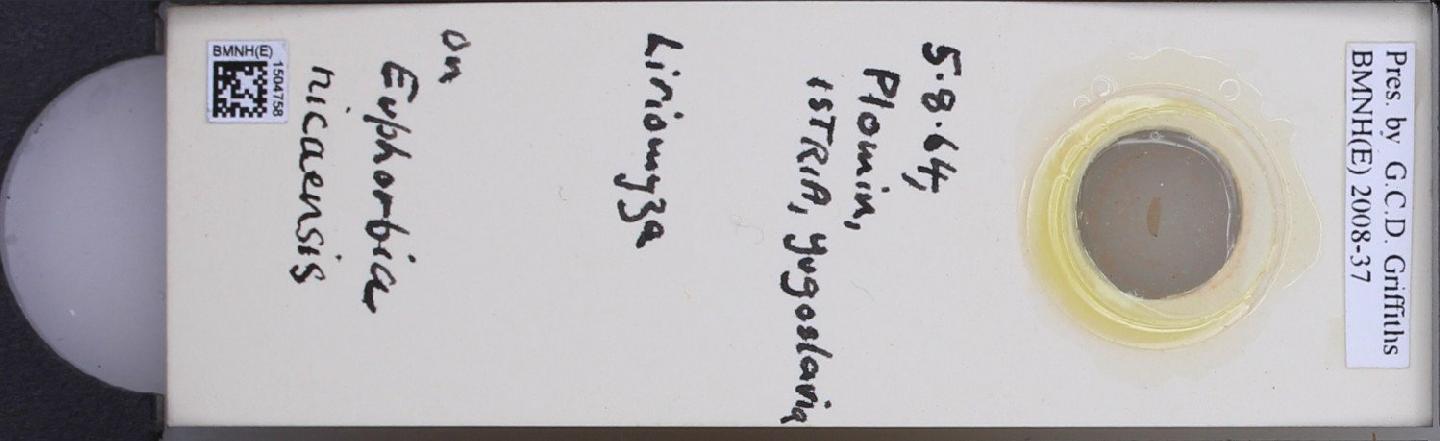 Pres. by G.C.D. Griffiths
BMNH(E) 2008-37
5.8.64,
Plomin,
ISTRIA, Yugoslavia
Liriomyza
on
Euphorbia
nicaensis
BMNH(E)
1504758